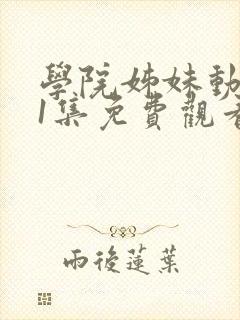 學院姊妹動
1集免費觀看
雨後蓮葉